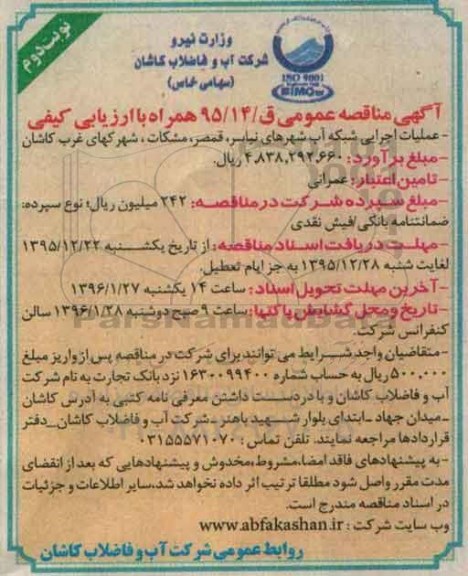 نوبت دوم
وزارت نیرو
شرکت آب و فاضلاب کاشان
(سهامی خاص)
ISO 9001
BIMCO
آگهی مناقصه عمومی ق/۹۵/۱۴ همراه با ارزیابی کیفی
- عملیات اجرایی شبکه آب شهرهای نیاسر، قمصر، مشکات ، شهرکهای غرب کاشان
- مبلغ برآورد: ۴,۸۳۸,۲۹۲,۶۶۰ ریال.
- تامین اعتبار: عمرانی
- مبلغ سپرده شرکت در مناقصه: ۲۴۲ میلیون ریال؛ نوع سپرده:
ضمانتنامه بانکی/فیش نقدی
- مهلت دریافت اسناد مناقصه: از تاریخ یکشنبه ۱۳۹۵/۱۲/۲۲
لغایت شنبه ۱۳۹۵/۱۲/۲۸ به جز ایام تعطیل.
- آخرین مهلت تحویل اسناد: ساعت ۱۴ یکشنبه ۱۳۹۶/۱/۲۷
- تاریخ و محل گشایش پاکتها: ساعت ۹ صبح دوشنبه ۱۳۹۶/۱/۲۸ سالن
کنفرانس شرکت.
- متقاضیان واجد شرایط می توانند برای شرکت در مناقصه پس از واریز مبلغ
۵۰۰,۰۰۰ ریال به حساب شماره ۱۶۳۰۰۹۹۴۰۰ نزد بانک تجارت به نام شرکت
آب و فاضلاب کاشان و با در دست داشتن معرفی نامه کتبی به آدرس کاشان
ـ میدان جهاد ـ ابتدای بلوار شهید باهنر ـ شرکت آب و فاضلاب کاشان ـ دفتر
قراردادها مراجعه نمایند. تلفن تماس : ۰۳۱۵۵۵۷۱۰۷۰
- به پیشنهادهای فاقد امضا، مشروط، مخدوش و پیشنهادهایی که بعد از انقضای
مدت مقرر واصل شود مطلقا ترتیب اثر داده نخواهد شد، سایر اطلاعات و جزئیات
در اسناد مناقصه مندرج است.
وب سایت شرکت : www.abfakashan.ir
روابط عمومی شرکت آب و فاضلاب کاشان